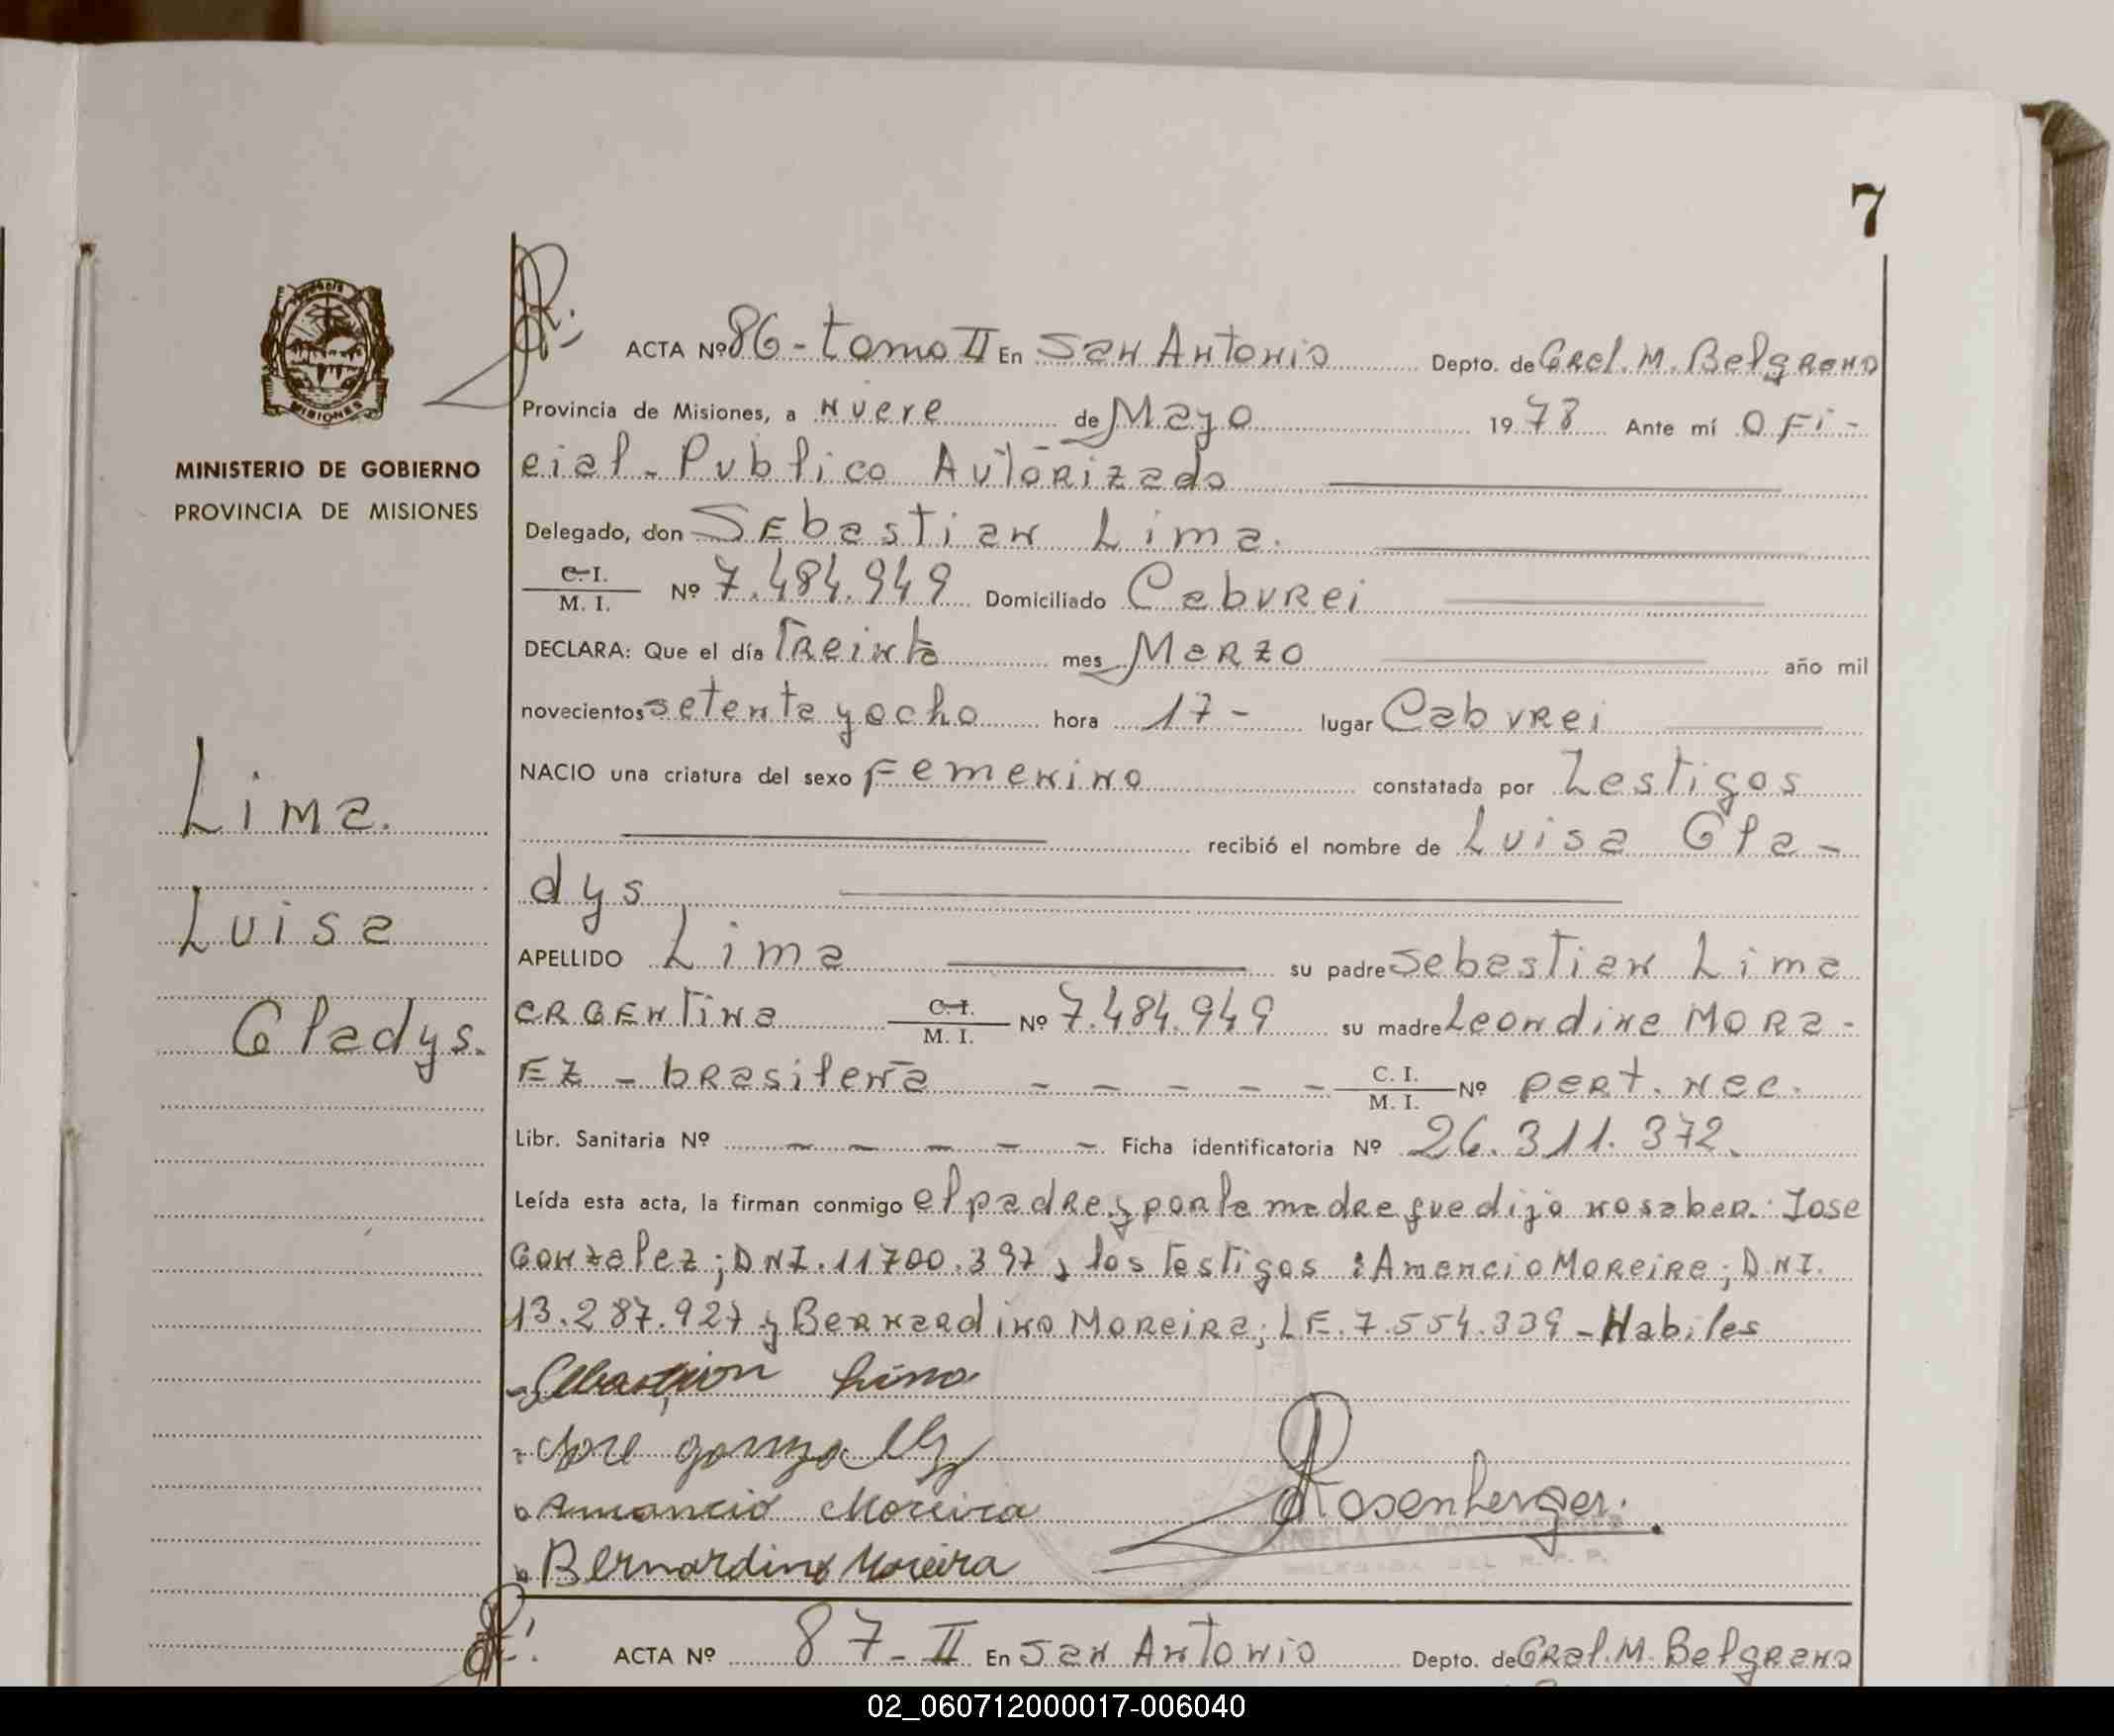 7
ACTA Nº 86 - tomo II En San Antonio Depto. de Gral. M. Belgrano
Provincia de Misiones, a nueve de Mayo 1978 Ante mí Ofi-
cial - Publico Autorizado
MINISTERIO DE GOBIERNO
PROVINCIA DE MISIONES
Delegado, don Sebastian Lima.
C.I. / M. I. Nº 7.484.949 Domiciliado Caburei
DECLARA: Que el día Treinta mes Marzo año mil
novecientos setenta y ocho hora 17 - lugar Caburei
NACIO una criatura del sexo Femenino constatada por Testigos
recibió el nombre de Luisa Gla-
dys
Lima.
Luisa
Gladys.
APELLIDO Lima su padre Sebastian Lima
argentina C.I. / M. I. Nº 7.484.949 su madre Leondina Mora-
ez - brasileña - - - - - C. I. / M. I. Nº pert. nec.
Libr. Sanitaria Nº - - - - - Ficha identificatoria Nº 26.311.372.
Leída esta acta, la firman conmigo el padre y por la madre que dijo no saber: Jose
Gonzalez; DNI. 11700.397, los testigos: Amancio Moreira; DNI.
13.287.927 y Bernardino Moreira; LE. 7.554.339 - Habiles
- Sebastian Lima
- Jose gonzalez
Amancio Moreira
Rosenberger.
Bernardino Moreira
ACTA Nº 87 - II En San Antonio Depto. de Gral. M. Belgrano
02_060712000017-006040